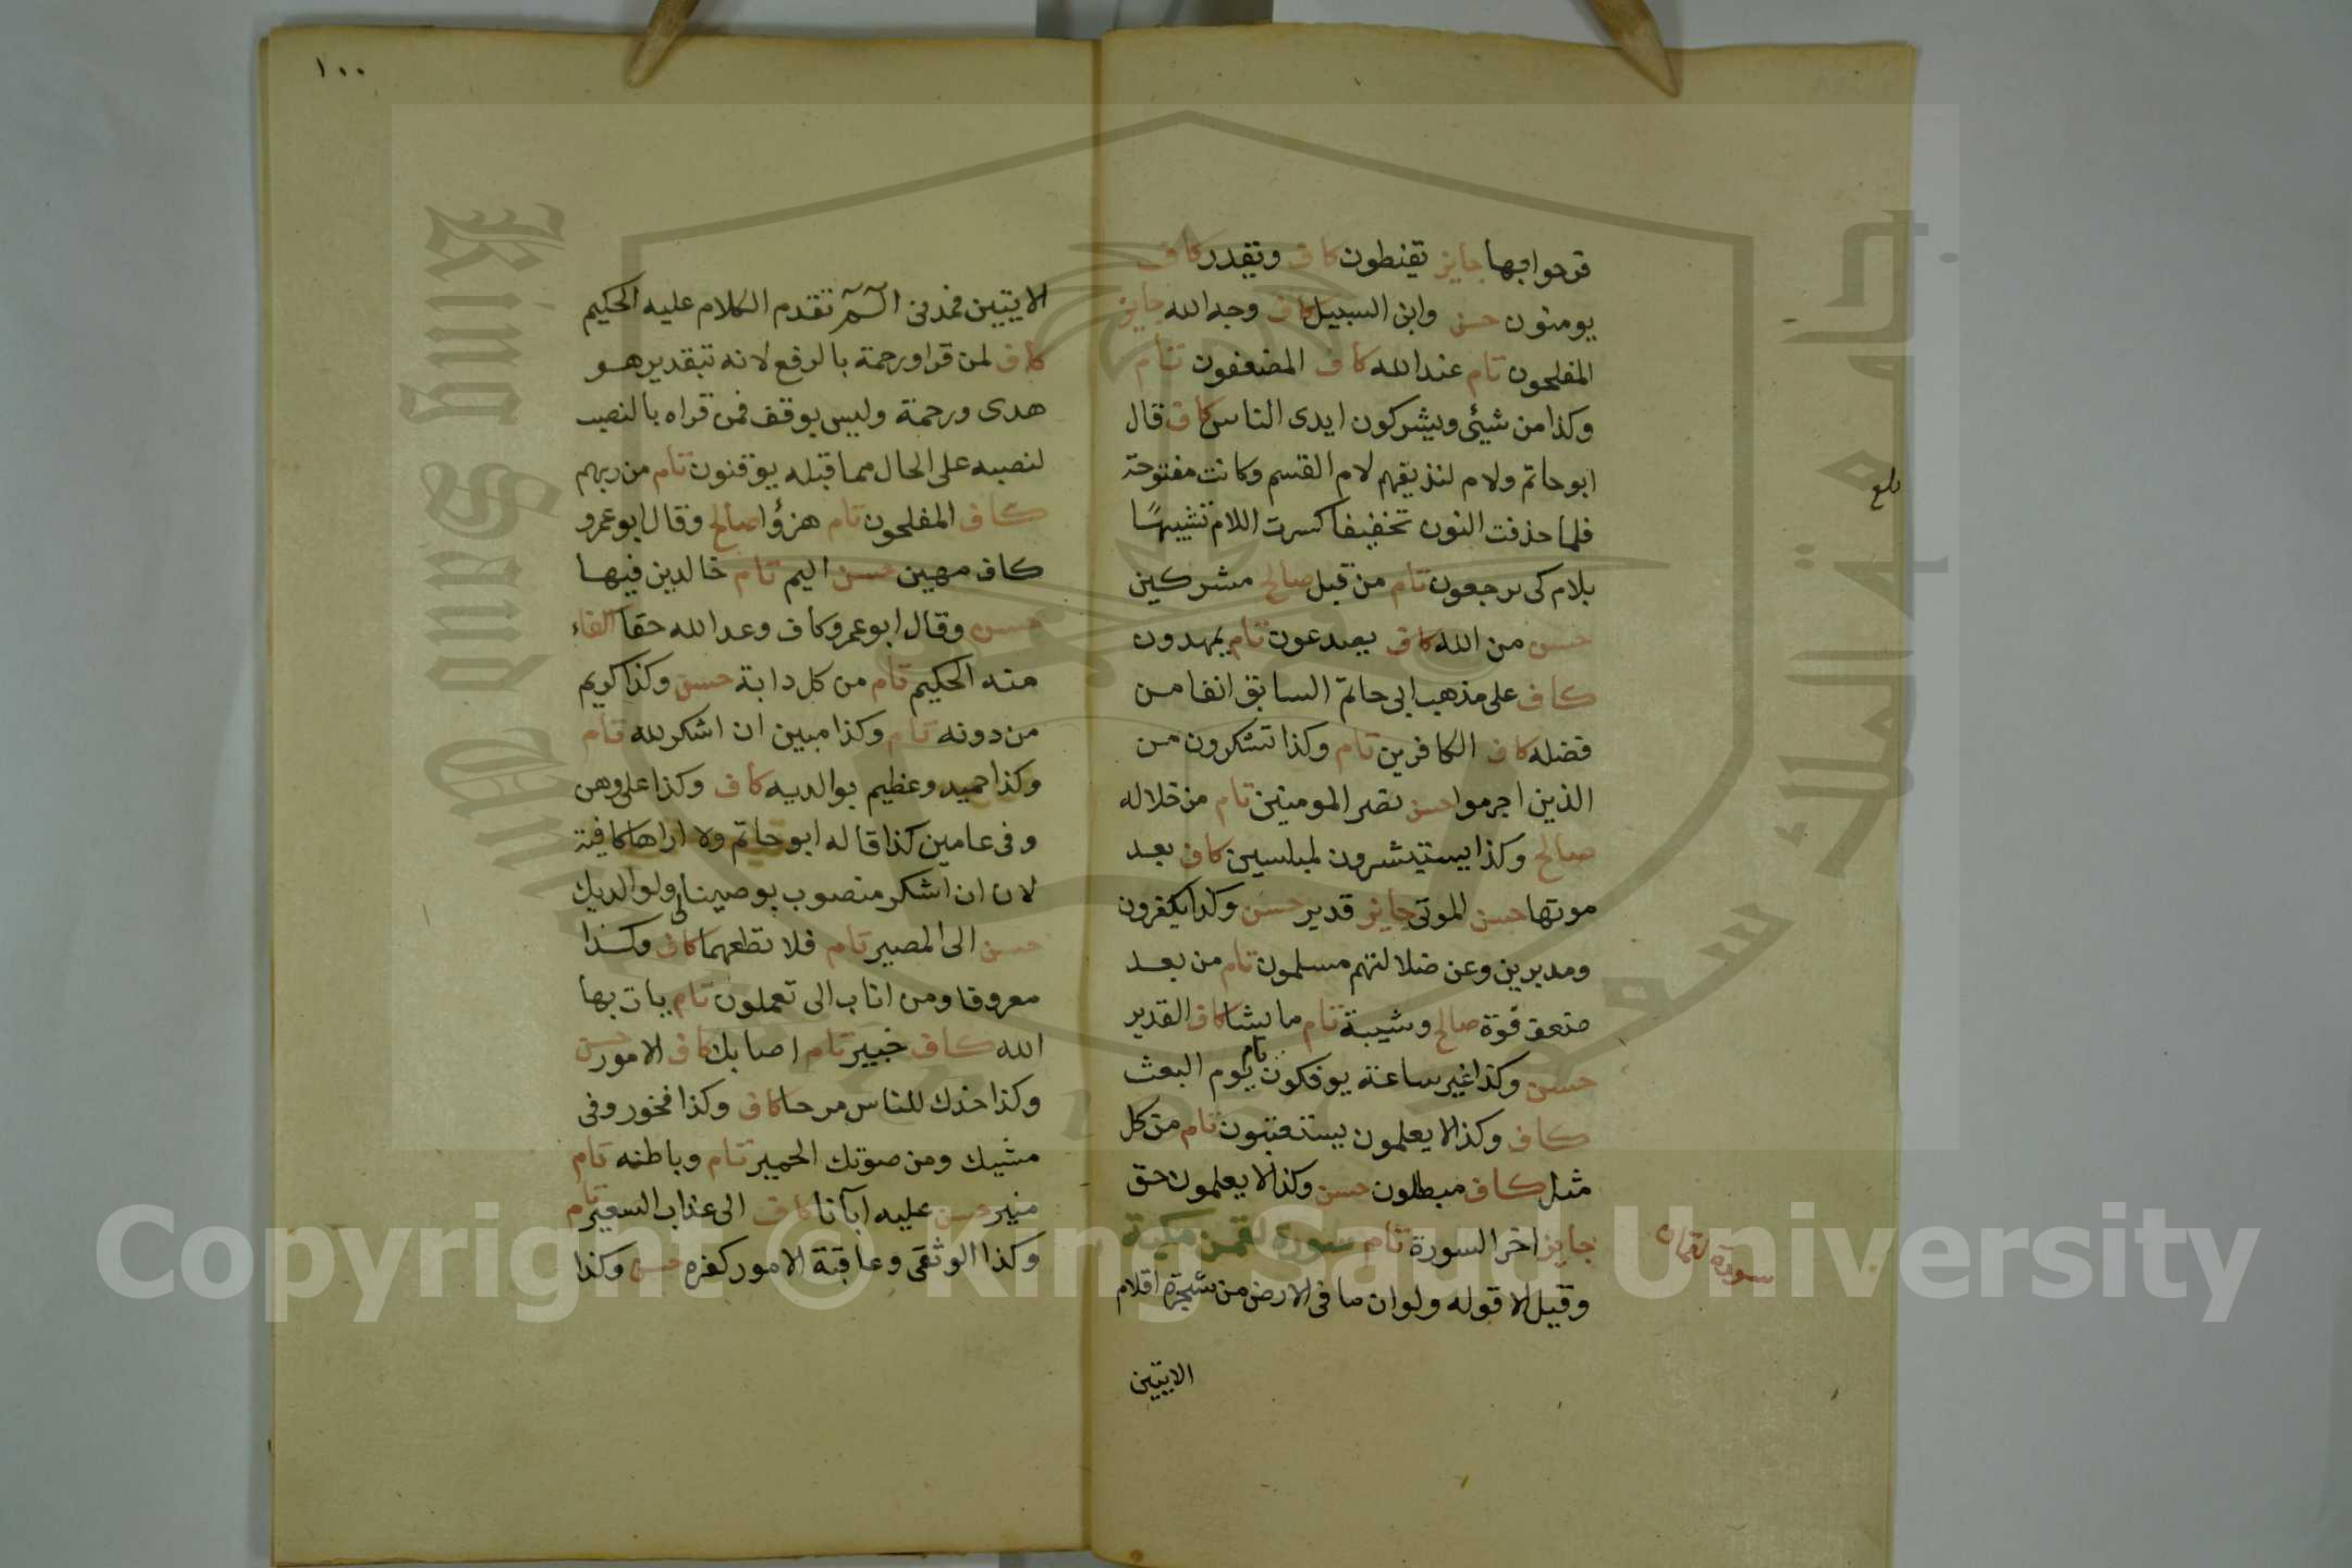 فرحوا بها جايز تقنطون كاف ويقدر كاف
يومنون حسن وابن السبيل كاف وجه الله جايز
المفلحون تام عند الله كاف المضعفون تام
وكذا من شيئ ويشركون ايدى الناس كاف قال
ابو حاتم ولام لنذيقهم لام القسم وكانت مفتوحة
فلما حذفت النون تخفيفا كسرت اللام تشبيهًا
بلام كى يرجعون تام من قبل صالح مشركين
حسن من الله كاف يصدعون تام يمهدون
كاف على مذهب ابى حاتم السابق انفا من
فضله كاف الكافرين تام وكذا تشكرون من
الذين اجرموا حسن نصر المومنين تام من خلاله
صالح وكذا يستبشرون لمبلسين كاف بعد
موتها حسن الموتى جايز قدير حسن وكذا يكفرون
ومدبرين وعن ضلالتهم مسلمون تام من بعد
ضعف قوة صالح وشيبة تام ما يشا كاف القدير
حسن وكذا غير ساعة يوفكون تام يوم البعث
كاف وكذا لا يعلمون يستعتبون تام من كل
مثل كاف مبطلون حسن وكذا لا يعلمون حق
جايز اخر السورة تام سورة لقمن مكية
وقيل الا قوله ولو ان ما فى الارض من شجرة اقلام
الايتين
سورة لقمان
بلغ
١٠٠
الايتين فمدنى الم تقدم الكلام عليه الحكيم
كاف لمن قرا ورحمة بالرفع لانه بتقدير هو
هدى ورحمة وليس بوقف فمن قراه بالنصب
لنصبه على الحال مما قبله يوقنون تام من ربهم
كاف المفلحون تام هزؤا صالح وقال ابو عمرو
كاف مهين حسن اليم تام خالدين فيها
حسن وقال ابو عمرو كاف وعد الله حقا
منه الحكيم تام من كل دابة حسن وكذا كريم
من دونه تام وكذا مبين ان اشكر لله تام
وكذا حميد وعظيم بوالديه كاف وكذا على وهن
وفى عامين كذا قاله ابو حاتم ولا اراها كافية
لان ان اشكر منصوب بوصينا لى ولوالديك
حسن الى المصير تام فلا تطعهما كاف وكذا
معروفا ومن اناب الى تعملون تام يات بها
الله كاف خبير تام اصابك كاف الامور حسن
وكذا خدك للناس مرحا كاف وكذا فخور وفى
مشيك ومن صوتك الحمير تام وباطنه تام
منير حسن عليه اباتنا كاف الى عذاب السعير تام
وكذا الوثقى وعاقبة الامور كفره حسن وكذا
King Saud University
جامعة الملك سعود
1957
Copyright © King Saud University